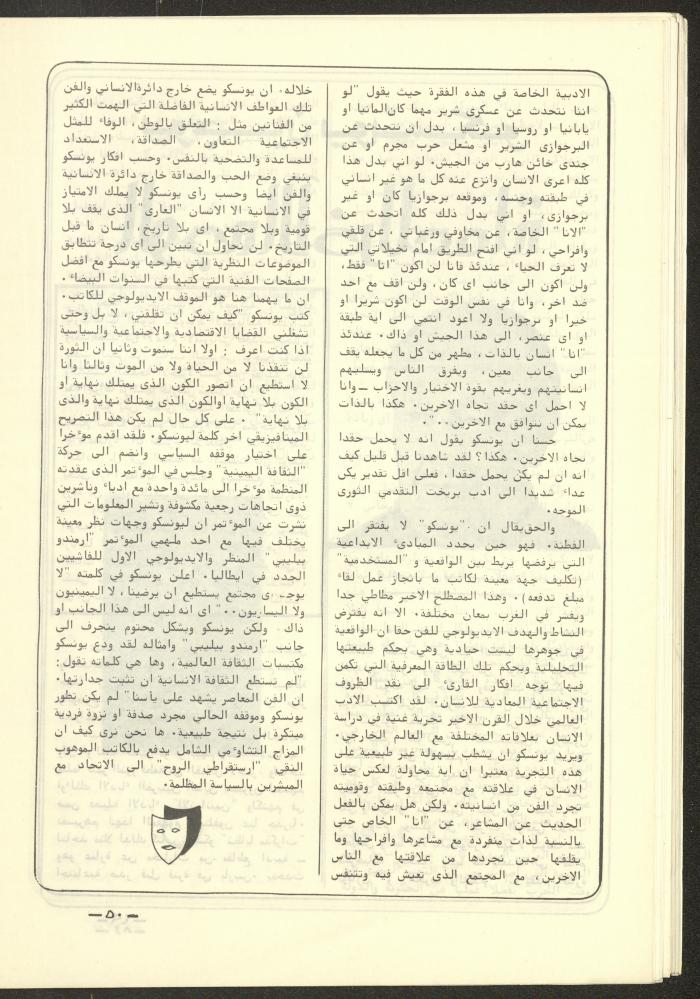 الادبية الخاصة في هذه الفقرة حيث يقول "لو
اننا نتحدث عن عسكرى شرير مهما كان المانيا او
يابانيا او روسيا او فرنسيا، بدل ان نتحدث عن
البرجوازى الشرير او مشعل حرب مجرم او عن
جندى خائن هارب من الجيش. لو اني بدل هذا
كله اعرى الانسان وانزع عنه كل ما هو غير انساني
في طبقته وجنسه، وموقعه برجوازيا كان او غير
برجوازى، او اني بدل ذلك كله اتحدث عن
"الانا" الخاصة، عن مخاوفي ورغباتي ، عن قلقي
وافراحي ، لو اني افتح الطريق امام تخيلاتي التي
لا تعرف الحياء ، عندئذ فانا لن اكون "انا" فقط،
ولن اكون الى جانب اى كان، ولن اقف مع احد
ضد اخر، وانا في نفس الوقت لن اكون شريرا او
خيرا او برجوازيا ولا اعود انتمي الى اية طبقة
او اى عنصر، الى هذا الجيش او ذاك. عندئذ
"انا" انسان بالذات، مطهر من كل ما يجعله يقف
الى جانب معين، ويفرق الناس ويسلبهم
انسانيتهم ويغريهم بقوة الاختيار والاحزاب – وانا
لا احمل اى حقد تجاه الاخرين. هكذا بالذات
يمكن ان نتوافق مع الاخرين ..".
حسنا ان يونسكو يقول انه لا يحمل حقدا
تجاه الاخرين. هكذا؟ لقد شاهدنا قبل قليل كيف
انه ان لم يكن يحمل حقدا ، فعلى اقل تقدير يكن
عداء شديدا الى ادب بريخت التقدمي الثورى
الموجه.
والحق يقال ان "يونسكو" لا يفتقر الى
الفطنة. فهو حين يحدد المبادىء الابداعية
التي يرفضها يربط بين الواقعية و "المستخدمية"
(تكليف جهة معينة لكاتب ما بانجاز عمل لقاء
مبلغ تدفعه). وهذا المصطلح الاخير مطاطي جدا
ويفسر في الغرب بمعان مختلفة. الا انه يفترض
النشاط والهدف الايديولوجي للفن حقا ان الواقعية
في جوهرها ليست حيادية وهي بحكم طبيعتها
التحليلية وبحكم تلك الطاقة المعرفية التي تكمن
فيها توجه افكار القارىء الى نقد الظروف
الاجتماعية المعادية للانسان. لقد اكتسب الادب
العالمي خلال القرن الاخير تجربة غنية في دراسة
الانسان بعلاقاته المختلفة مع العالم الخارجي.
ويريد يونسكو ان يشطب بسهولة غير طبيعية على
هذه التجربة معتبرا ان اية محاولة لعكس حياة
الانسان في علاقته مع مجتمعه وطبقته وقوميته
تجرد الفن من انسانيته. ولكن هل يمكن بالفعل
الحديث عن المشاعر، عن "انا" الخاص حتى
بالنسبة لذات منفردة مع مشاعرها وافراحها وما
يقلقها حين نجردها من علاقتها مع الناس
الاخرين، مع المجتمع الذى تعيش فيه وتتنفس
خلاله. ان يونسكو يضع خارج دائرة الانساني والفن
تلك العواطف الانسانية الفاضلة التي الهمت الكثير
من الفنانين مثل : التعلق بالوطن، الوفاء للمثل
الاجتماعية التعاون. الصداقة، الاستعداد
للمساعدة والتضحية بالنفس. وحسب افكار يونسكو
ينبغي وضع الحب والصداقة خارج دائرة الانسانية
والفن ايضا وحسب رأى يونسكو لا يملك الامتياز
في الانسانية الا الانسان "العارى" الذى يقف بلا
قومية وبلا مجتمع، اى بلا تاريخ، انسان ما قبل
التاريخ. لن نحاول ان نبين الى اى درجة تتطابق
الموضوعات النظرية التي يطرحها يونسكو مع افضل
الصفحات الفنية التي كتبها في السنوات البيضاء.
ان ما يهمنا هنا هو الموقف الايديولوجي للكاتب.
كتب يونسكو "كيف يمكن ان تقلقني ، لا بل وحتى
تشغلني القضايا الاقتصادية والاجتماعية والسياسية
اذا كنت اعرف : اولا اننا سنموت وثانيا ان الثورة
لن تنقذنا لا من الحياة ولا من الموت وثالثا وانا
لا استطيع ان اتصور الكون الذى يمتلك نهاية او
الكون بلا نهاية اوالكون الذى يمتلك نهاية والذى
بلا نهاية" . على كل حال لم يكن هذا التصريح
الميتافيزيقي اخر كلمة ليونسكو. فلقد اقدم موءخرا
على اختيار موقفه السياسي وانضم الى حركة
"الثقافة اليمينية" وجلس في الموءتمر الذى عقدته
المنظمة موءخرا الى مائدة واحدة مع ادباء وناشرين
ذوى اتجاهات رجعية مكشوفة وتشير المعلومات التي
نشرت عن الموءتمر ان ليونسكو وجهات نظر معينة
يختلف فيها مع احد ملهمي الموءتمر "ارمندو
بيليبي" المنظر والايديولوجي الاول للفاشيين
الجدد في ايطاليا. اعلن يونسكو في كلمته "لا
يوجد اى مجتمع يستطيع ان يرضينا ، لا اليمينيون
ولا اليساريون .." اى انه ليس الى هذا الجانب او
ذاك. ولكن يونسكو وبشكل محتوم ينجرف الى
جانب "ارمندو بيليبي" وامثاله لقد ودع يونسكو
مكتسبات الثقافة العالمية، وها هي كلماته تقول:
"لم تستطع الثقافة الانسانية ان تثبت جدارتها.
ان الفن المعاصر يشهد على يأسنا" لم يكن تطور
يونسكو وموقفه الحالي مجرد صدفة او نزوة فردية
مبتكرة بل نتيجة طبيعية. ها نحن نرى كيف ان
المزاج التشاوءمي الشامل يدفع بالكاتب الموهوب
النقي "ارستقراطي الروح" الى الاتحاد مع
المبشرين بالسياسة المظلمة.
— ٥٠ —